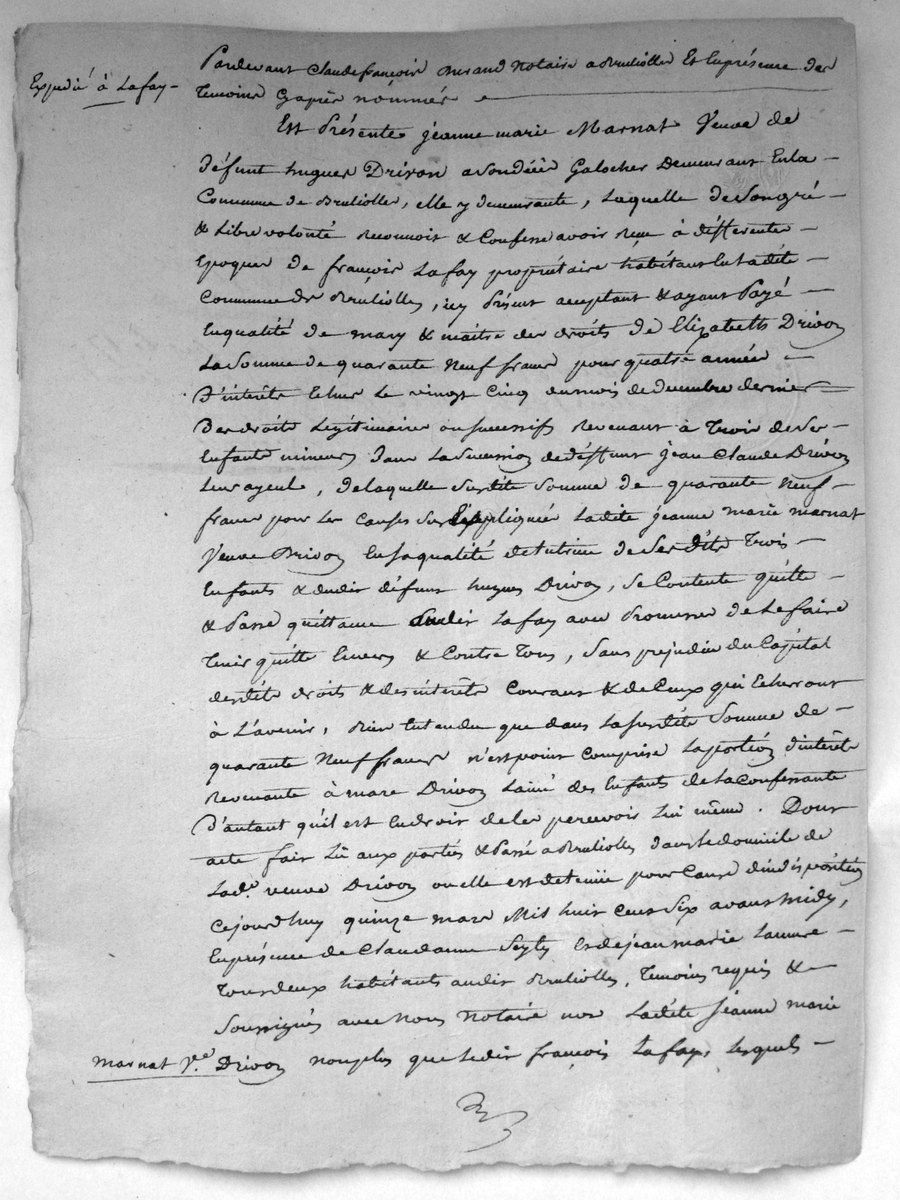 Expedié à Lafay-
Pardevant Claude françois Durand Notaire a Brulliolles Et Enprésence des
Temoins Cyaprès nommés
Est Présente jeanne marie Marnat Veuve de
défunt hugues Drivon Galocher Demeurant Enla
Commune de Brulliolles, elle y demeurante, Laquelle de Son gré
& Libre volonté Reconnoit & Confesse avoir Reçu à différentes
Epoques de françois Lafay propriétaire habitant En Ladite
Commune de Brulliolles, icy Présent acceptant & ayant Payé
En qualité de mary & maitre des droits de Elizabeth Drivon
La Somme de quarante Neuf francs pour quatre années
D'intérêts Echus Le vingt Cinq du mois de decembre dernier
Des droits Légitimaires ou successifs Revenant à Trois de Ses
Enfants mineurs dans La Succession de deffunt jean Claude Drivon
Leur ayeul, de laquelle Susdite Somme de quarante Neuf
francs pour Les Causes Sus Expliquées Ladite jeanne marie marnat
Veuve Drivon En Sa qualité de tutrice de Ses dits Trois
Enfants & dudit défunt hugues Drivon, Se Contente quitte
& Passe quittance audit Lafay avec Promesse de Le faire
Tenir quitte Envers & Contre Tous, Sans préjudice du Capital
desdits droits & des intérêts Courant & de Ceux qui Echerront
à L'avenir, Bien Entendu que dans La susdite Somme de
quarante Neuf francs n'est point Comprise La portion d'intérêts
Revenante à marc Drivon L'ainé des Enfants de La Confessante
D'autant qu'il est En droit de les percevoir Lui même. Dont
acte fait Lû aux parties & Passé a Brulliolles dans Le domicile de
Lade. veuve Drivon ou elle est detenüe pour Cause d'indisposition
Cejourd'huy quinze mars Mil huit Cent Six avant midy,
En présence de Claudanne Seyty & de jean marie Lamure
Tous deux habitants audit Brulliolles, Témoins requis &
Soussignés avec Nous Notaire non Ladite Jeanne marie
marnat Ve. Drivon non plus que Ledit françois Lafay, Lesquels